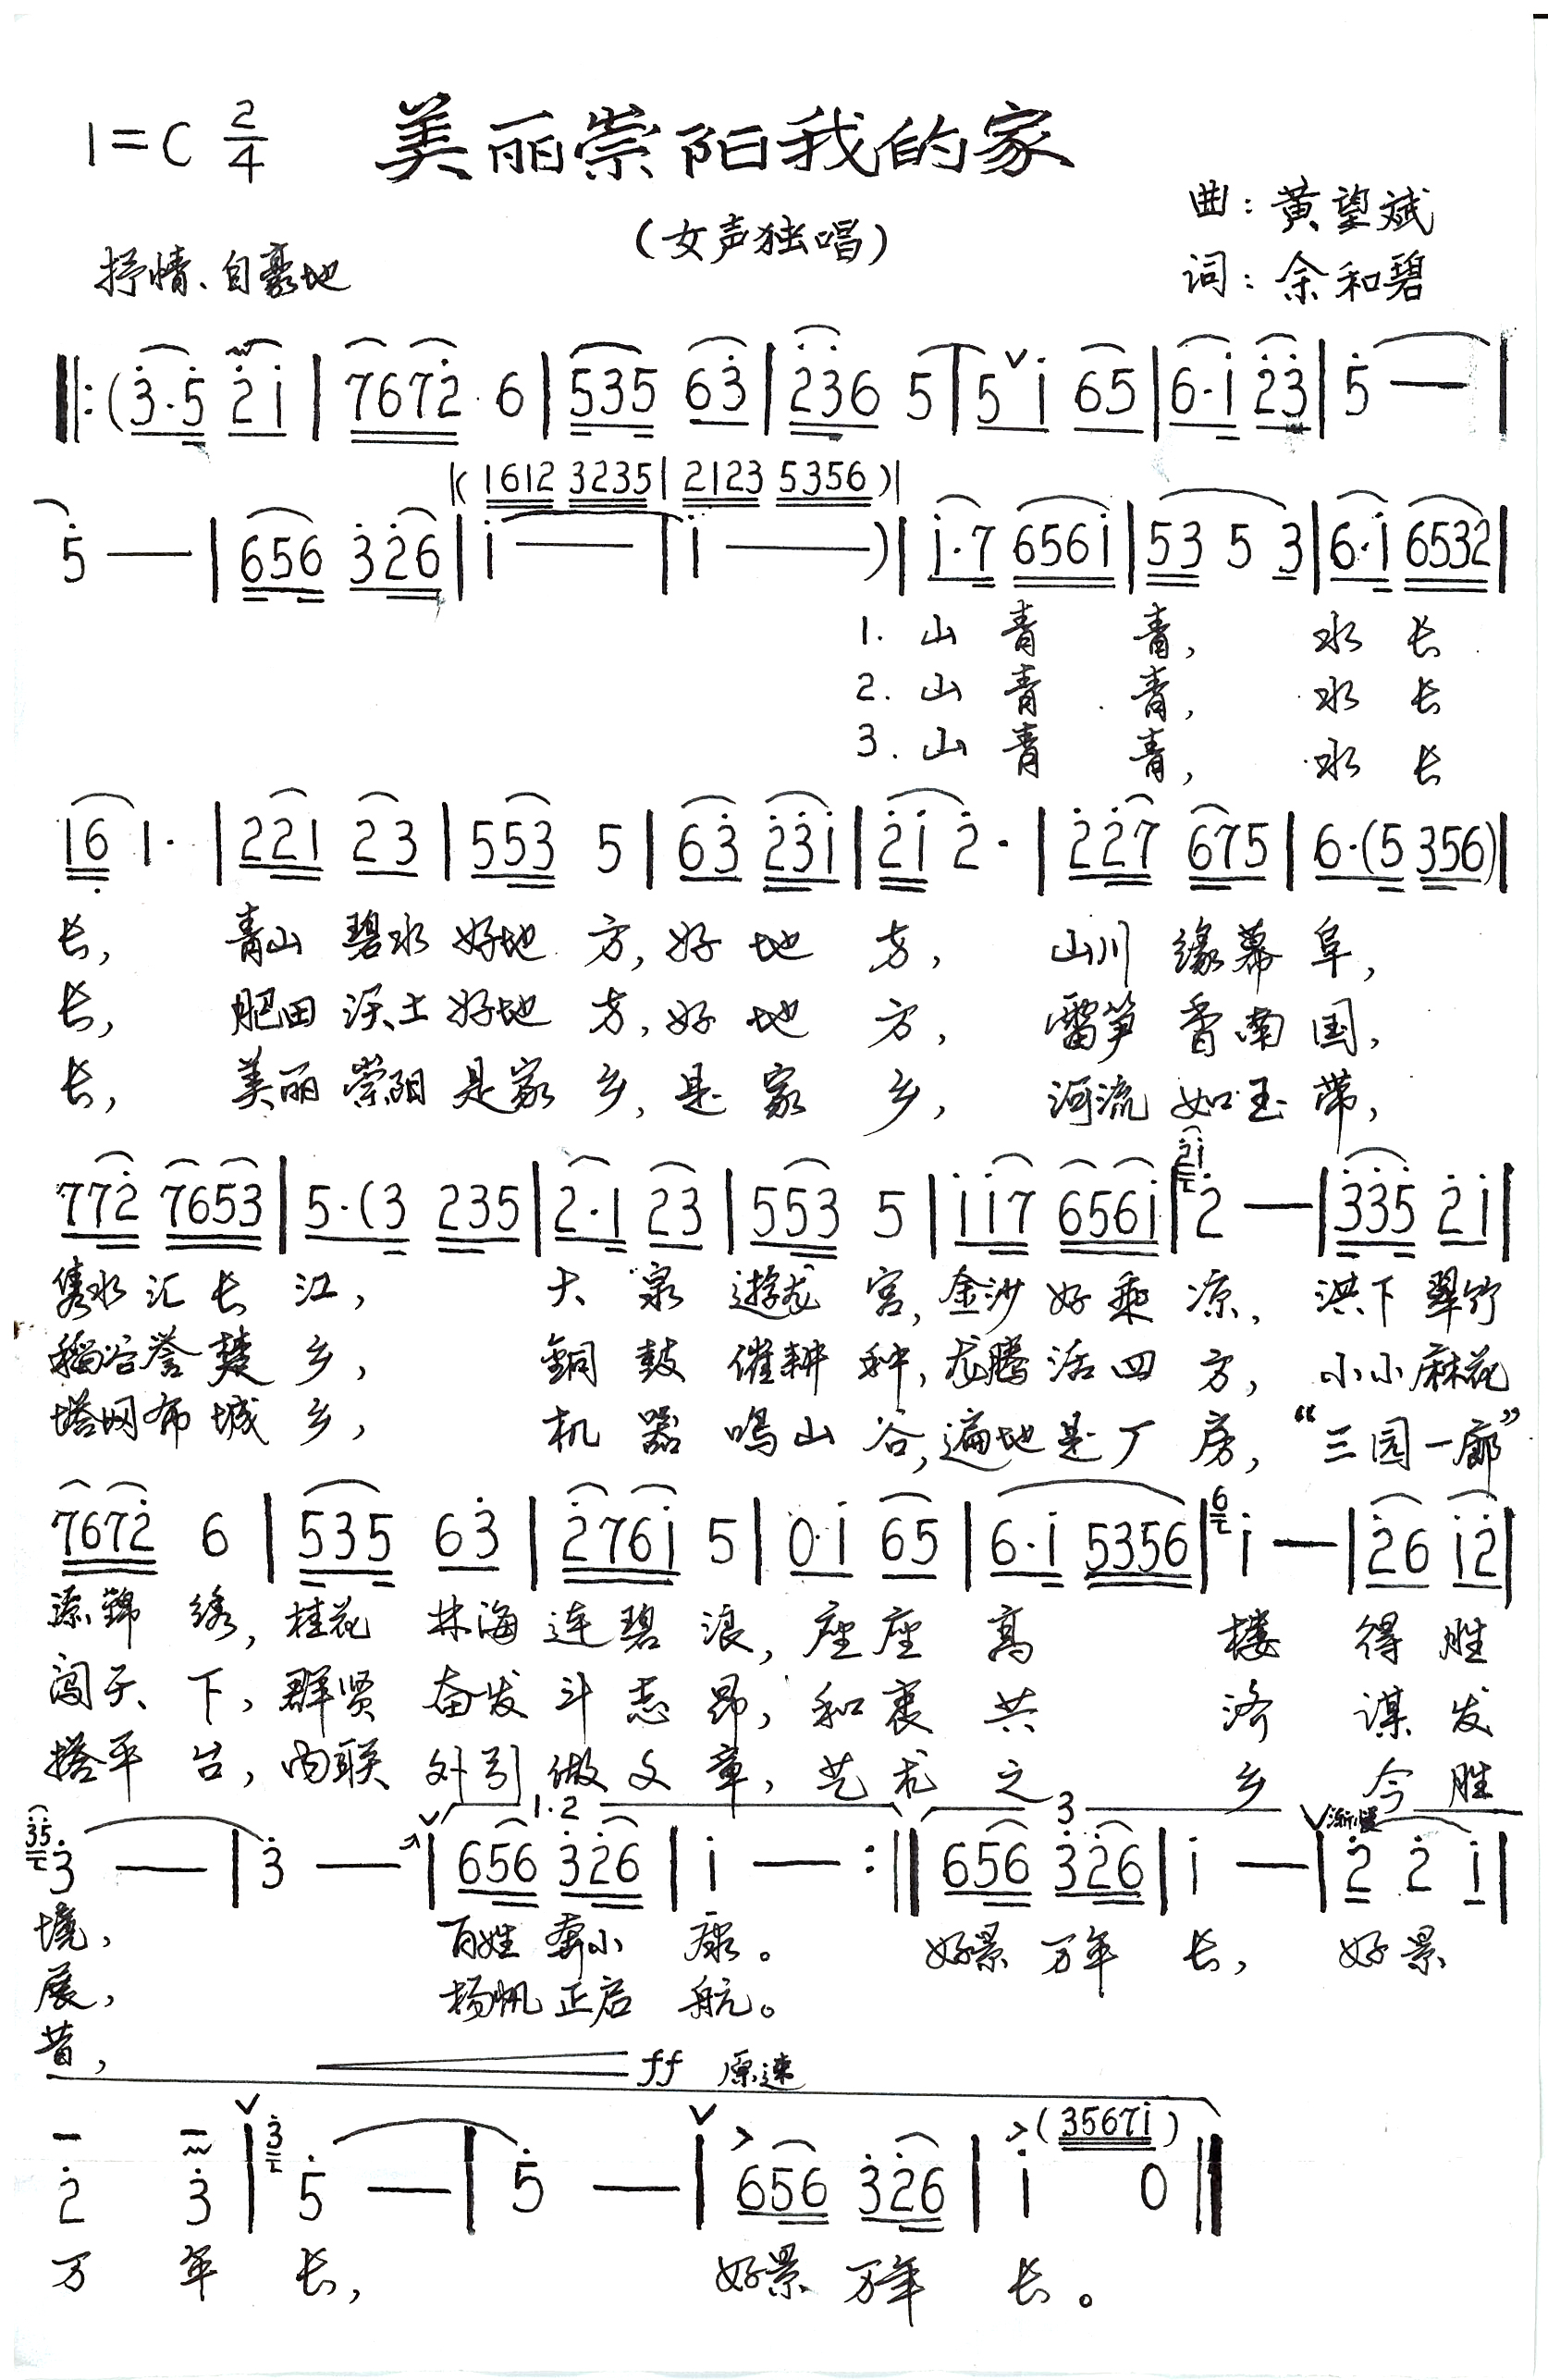 1=C 2/4 美丽崇阳我的家
(女声独唱)
曲:黄望斌
抒情、自豪地
词:余和碧
‖:(3̇·5̇ 2̇ i|7672̇ 6|535 63̇|2̇3̇6 5|5 ∨ i 65|6·i 2̇3̇|5̇ —|
|(1612 3235|2123 5356)|
5̇ —|656 3̇2̇6|i —|i —)|i·7 656i|53 5 3|6·i 6532|
1. 山青 青, 水长
2. 山青 青, 水长
3. 山青 青, 水长
16̣ 1·|221 23|553 5|63̇ 2̇3̇i|2̇i 2̇·|2̇2̇7 675|6·(5 356)|
长, 青山 碧水 好地 方,好 地 方, 山川 缘幕 阜,
长, 肥田 沃土 好地 方,好 地 方, 雷笋 香南 国,
长, 美丽 崇阳 是家 乡,是 家 乡, 河流 如玉 带,
772̇ 7653|5·(3 235|2·1 23|553 5|ii7 656i|2̇i 2̇ —|3̇3̇5̇ 2̇i|
隽水 汇长 江, 大 泉 游龙 宫,金沙 好乘 凉, 洪下 翠竹
稻谷誉楚 乡, 銅 鼓 催耕 种,龙腾 活四 方, 小小麻花
塔网布城 乡, 机 器 鸣山 谷,遍地是厂 房,“三园一廊”
7672̇ 6|535 63̇|2̇76i 5|0·i 65|6·i 5356|6 i —|2̇6 i2̇|
添锦 绣,桂花 林海 连碧 浪,座座 高 楼 得胜
闯天 下,群贤 奋发 斗志 昂,和衷 共 济 谋发
搭平 台,内联 外引 做文 章,艺术 之 乡 今胜
1.2 3 渐慢
3̇5̇ 3̇ —|3̇ —∨|656 3̇2̇6|i —:‖656 3̇2̇6|i —∨|2̇ 2̇ i|
境, 百姓 奔小 康。 好景 万年 长, 好景
展, 扬帆 正启 航。
昔,
ff 原速
(3567i)
2̇ 3̇∨|3̇ 5̇ —|5̇ —∨|656 3̇2̇6|i 0‖
万 年 长, 好景 万年 长。